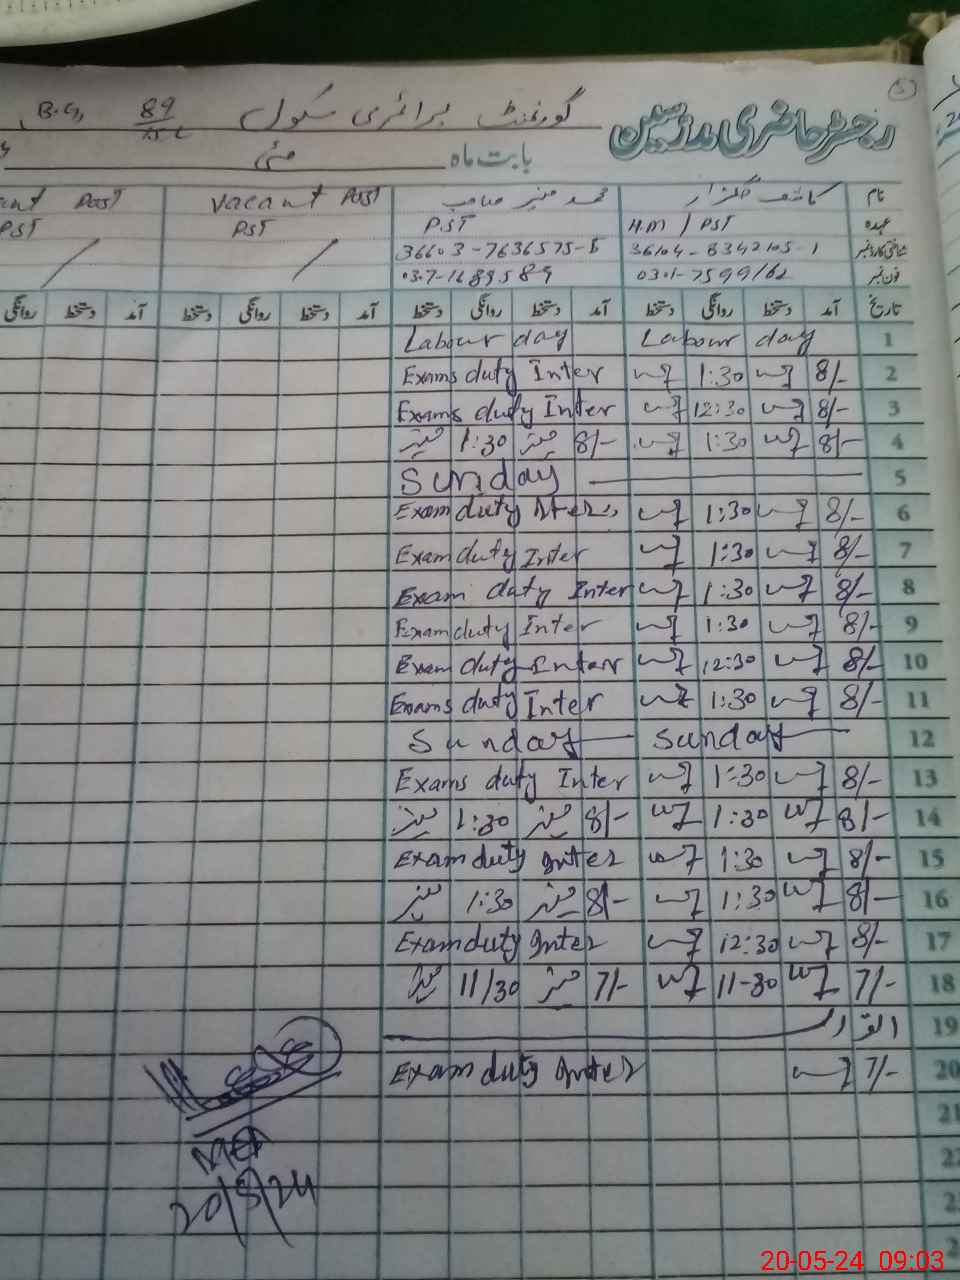 5
رجسٹر حاضری مدرسین گورنمنٹ پرائمری سکول 89/15L B.G,
بابت ماہ مئی
نام کاشف گلزار محمد منیر صاحب Vacant Post Post
عہدہ H.M / PST PST PST PST
شناختی کارڈ نمبر 36104-8342105-1 36603-7636575-5
فون نمبر 0301-7599162 0307-1689589
تاریخ آمد دستخط روانگی دستخط آمد دستخط روانگی دستخط آمد دستخط روانگی دستخط آمد دستخط روانگی
1 Labour day Labour day
2 8/- 1:30 Exams duty Inter
3 8/- 12:30 Exams duty Inter
4 8/- 1:30 8/- منیر 1:30 منیر
5 Sunday
6 8/- 1:30 Exam duty
7 8/- 1:30 Exam duty Inter
8 8/- 1:30 Exam duty Inter
9 8/- 1:30 Exam duty Inter
10 8/- 12:30 Exam duty Inter
11 8/- 1:30 Exams duty Inter
12 Sunday Sunday
13 8/- 1:30 Exams duty Inter
14 8/- 1:30 8/- منیر 1:30 منیر
15 8/- 1:30 Exam duty Inter
16 8/- 1:30 8/- منیر 1:30 منیر
17 8/- 12:30 Exam duty Inter
18 7/- 11-30 7/- منیر 11/30 منیر
19 اتوار
20 7/- Exam duty Inter
21
22
20/5/24
20-05-24 09:03